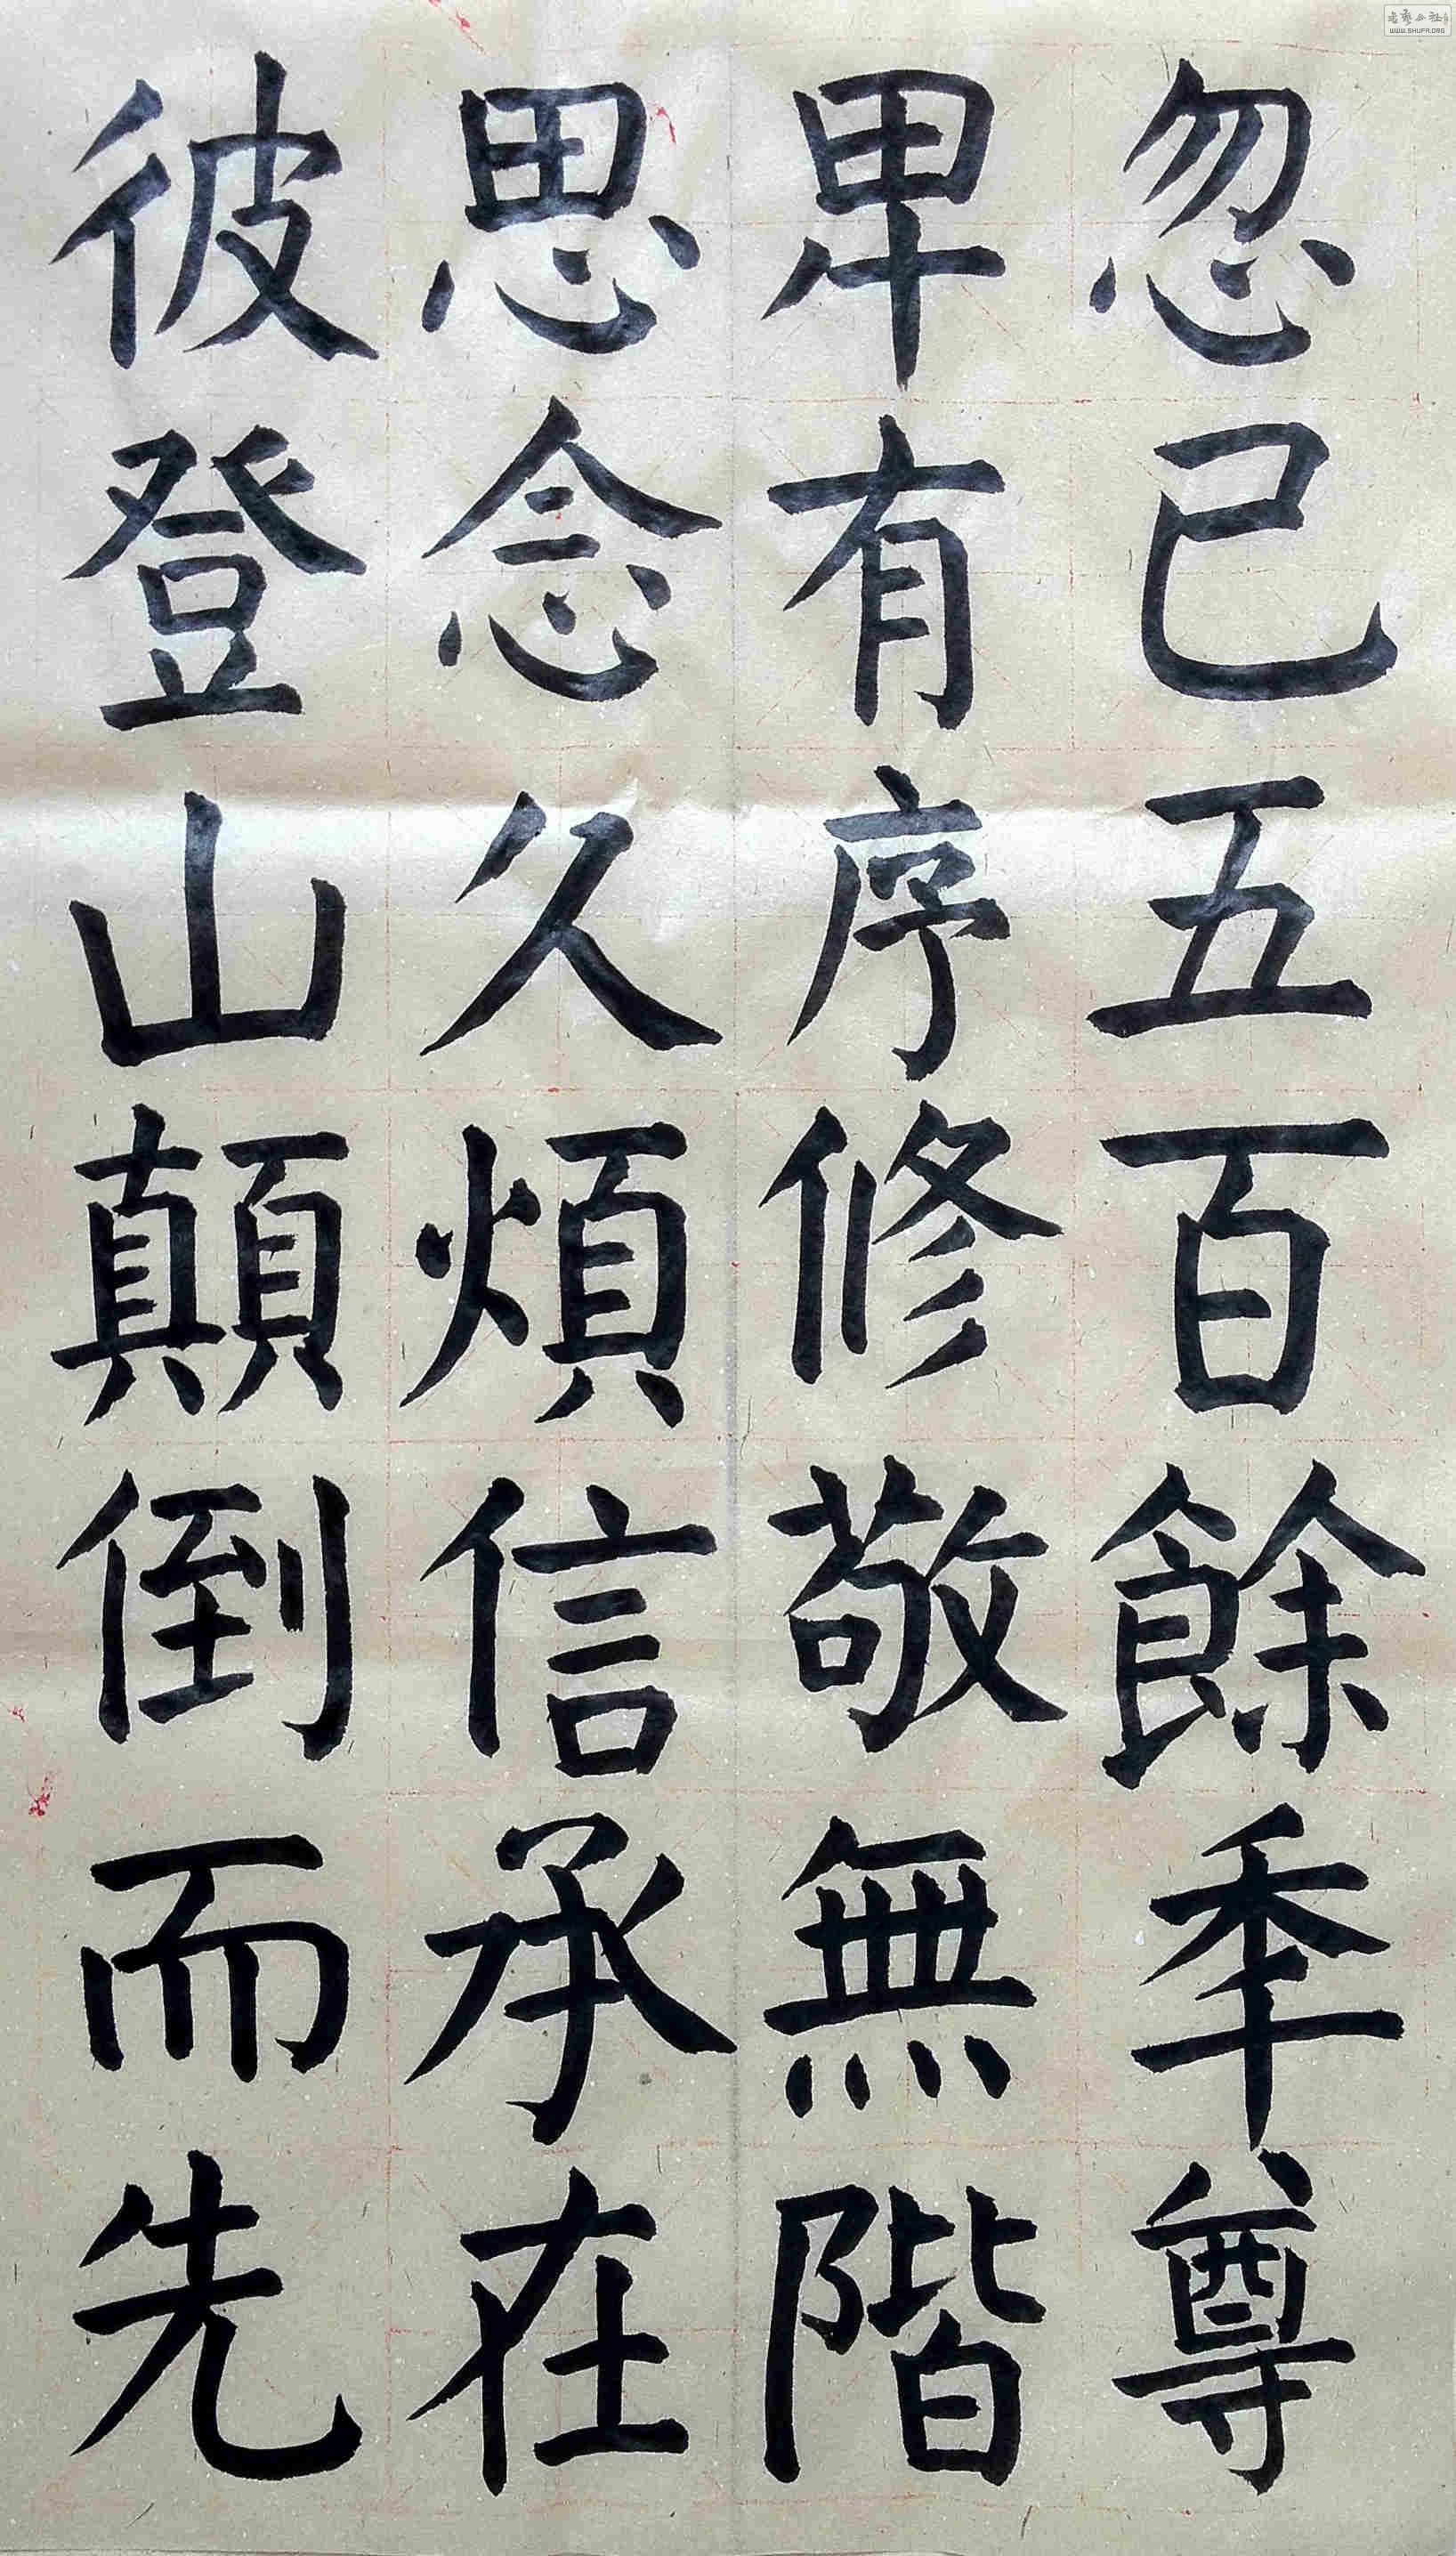 忽已五百餘秊尊
卑有序修敬無階
思念久煩信承在
彼登山顛倒而先
WWW.SHUFA.ORG